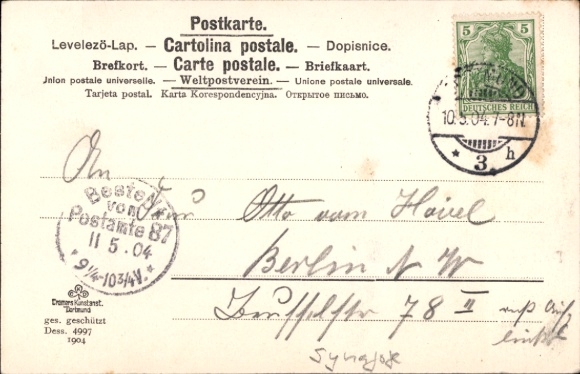 Postkarte.
Levelező-Lap. — Cartolina postale. — Dopisnice.
Brefkort. — Carte postale. — Briefkaart.
Jnion postale universelle. — Weltpostverein. — Unione postale universale.
Tarjeta postal. Karta Korespondencyjna. Открытое письмо.
5 5
DEUTSCHES REICH
10.5.04.7-8N.
* 3 h
An
Bestellt
vom
Postamte 87
11 5.04
9¼-10¾V.
Otto vom Hövel
Berlin N W
78 II
Cramers Kunstanst.
Dortmund
ges. geschützt
Dess. 4997
1904
Synagoge